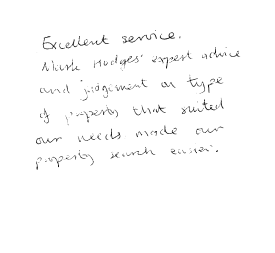 Excellent service.
Mark Hodges' expert advice
and judgement on type
of property that suited
our needs made our
property search easier.